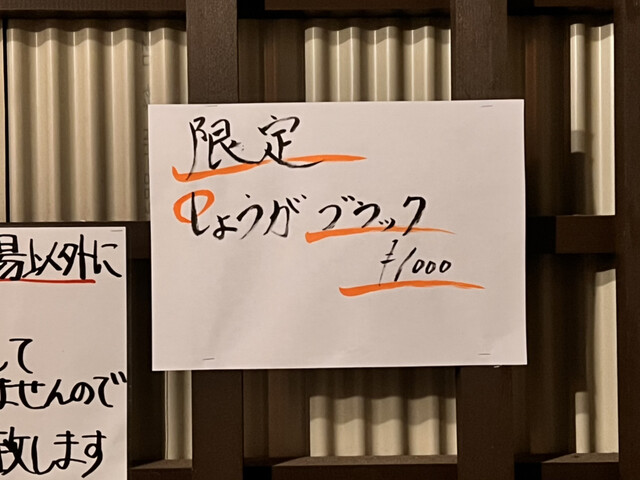 限定
しょうが ブラック
¥1000
以外に
して
ませんので
致します